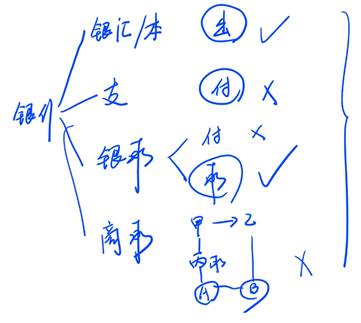 银汇/本 出 ✓
支 付 ×
银行
银承 付 ×
承 ✓
商承 甲→乙
丙承 ×
A B